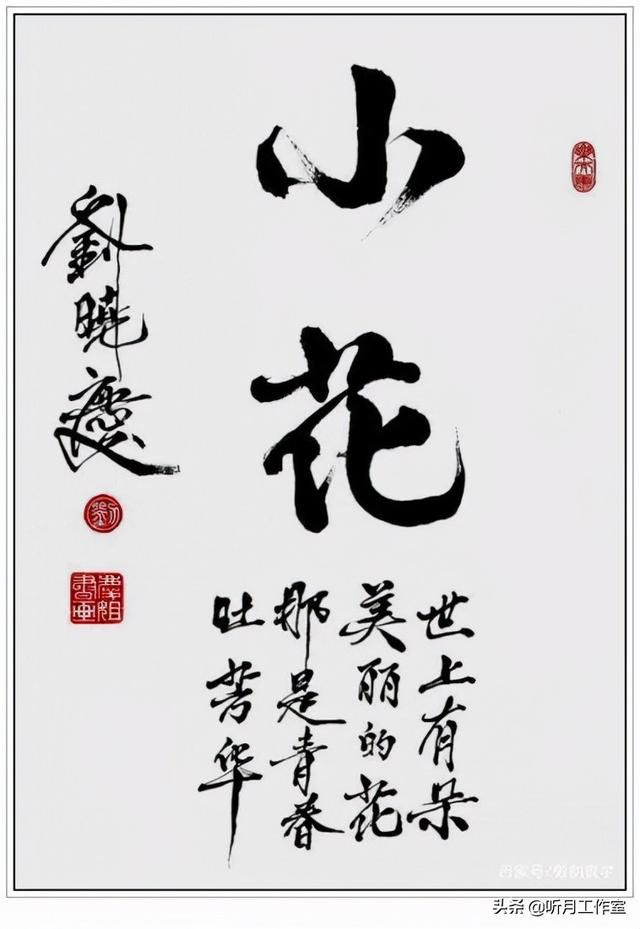 小花
世上有朵
美丽的花
那是青春
吐芳华
劉曉慶
头条 @听月工作室